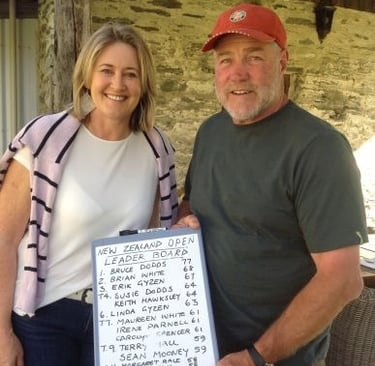 NEW ZEALAND OPEN
LEADER BOARD
1. BRUCE DODDS 77
2. BRIAN WHITE 68
3 ERIK GYZEN 67
T4. SUSIE DODDS 64
KEITH HAWKSLEY 64
6. LINDA GYZEN 63
T7. MAUREEN WHITE 61
IRENE PARNELL 61
CAROLYN SPENCER 61
T.9 TERRY HALL 59
SEAN MOONEY 59
MARGARET RALE 58